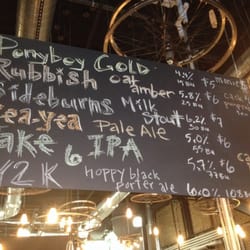 Ponyboy Gold 4.4% $5
Rubbish oat amber 5.8% $6
Sideburns Milk Stout 6.2% $7
ea-yea Pale Ale 5.0% $5
ake 6 IPA 5.7% $6
Y2K Hoppy black porter ale 6.0% 10